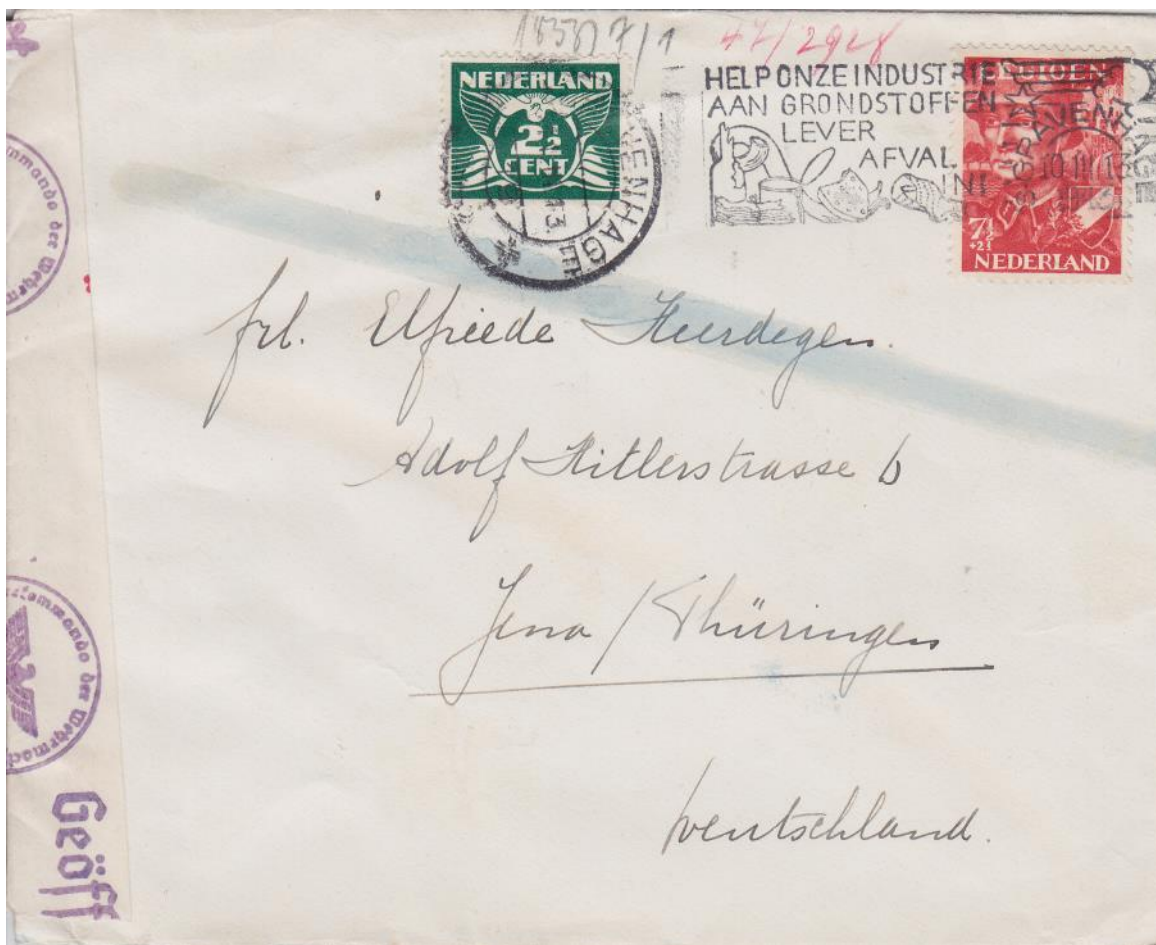 7/1 47/2928
NEDERLAND
2½
CENT
HELP ONZE INDUSTRIE
AAN GRONDSTOFFEN
LEVER
AFVAL
IN!
'S GRAVENHAGE
7½
+2½
NEDERLAND
frl. Elfriede Heerdegen.
Adolf Hitlerstrasse 6
Jena / Thüringen
Deutschland.
der Wehrm
kommando der Wehrmach
Geöff